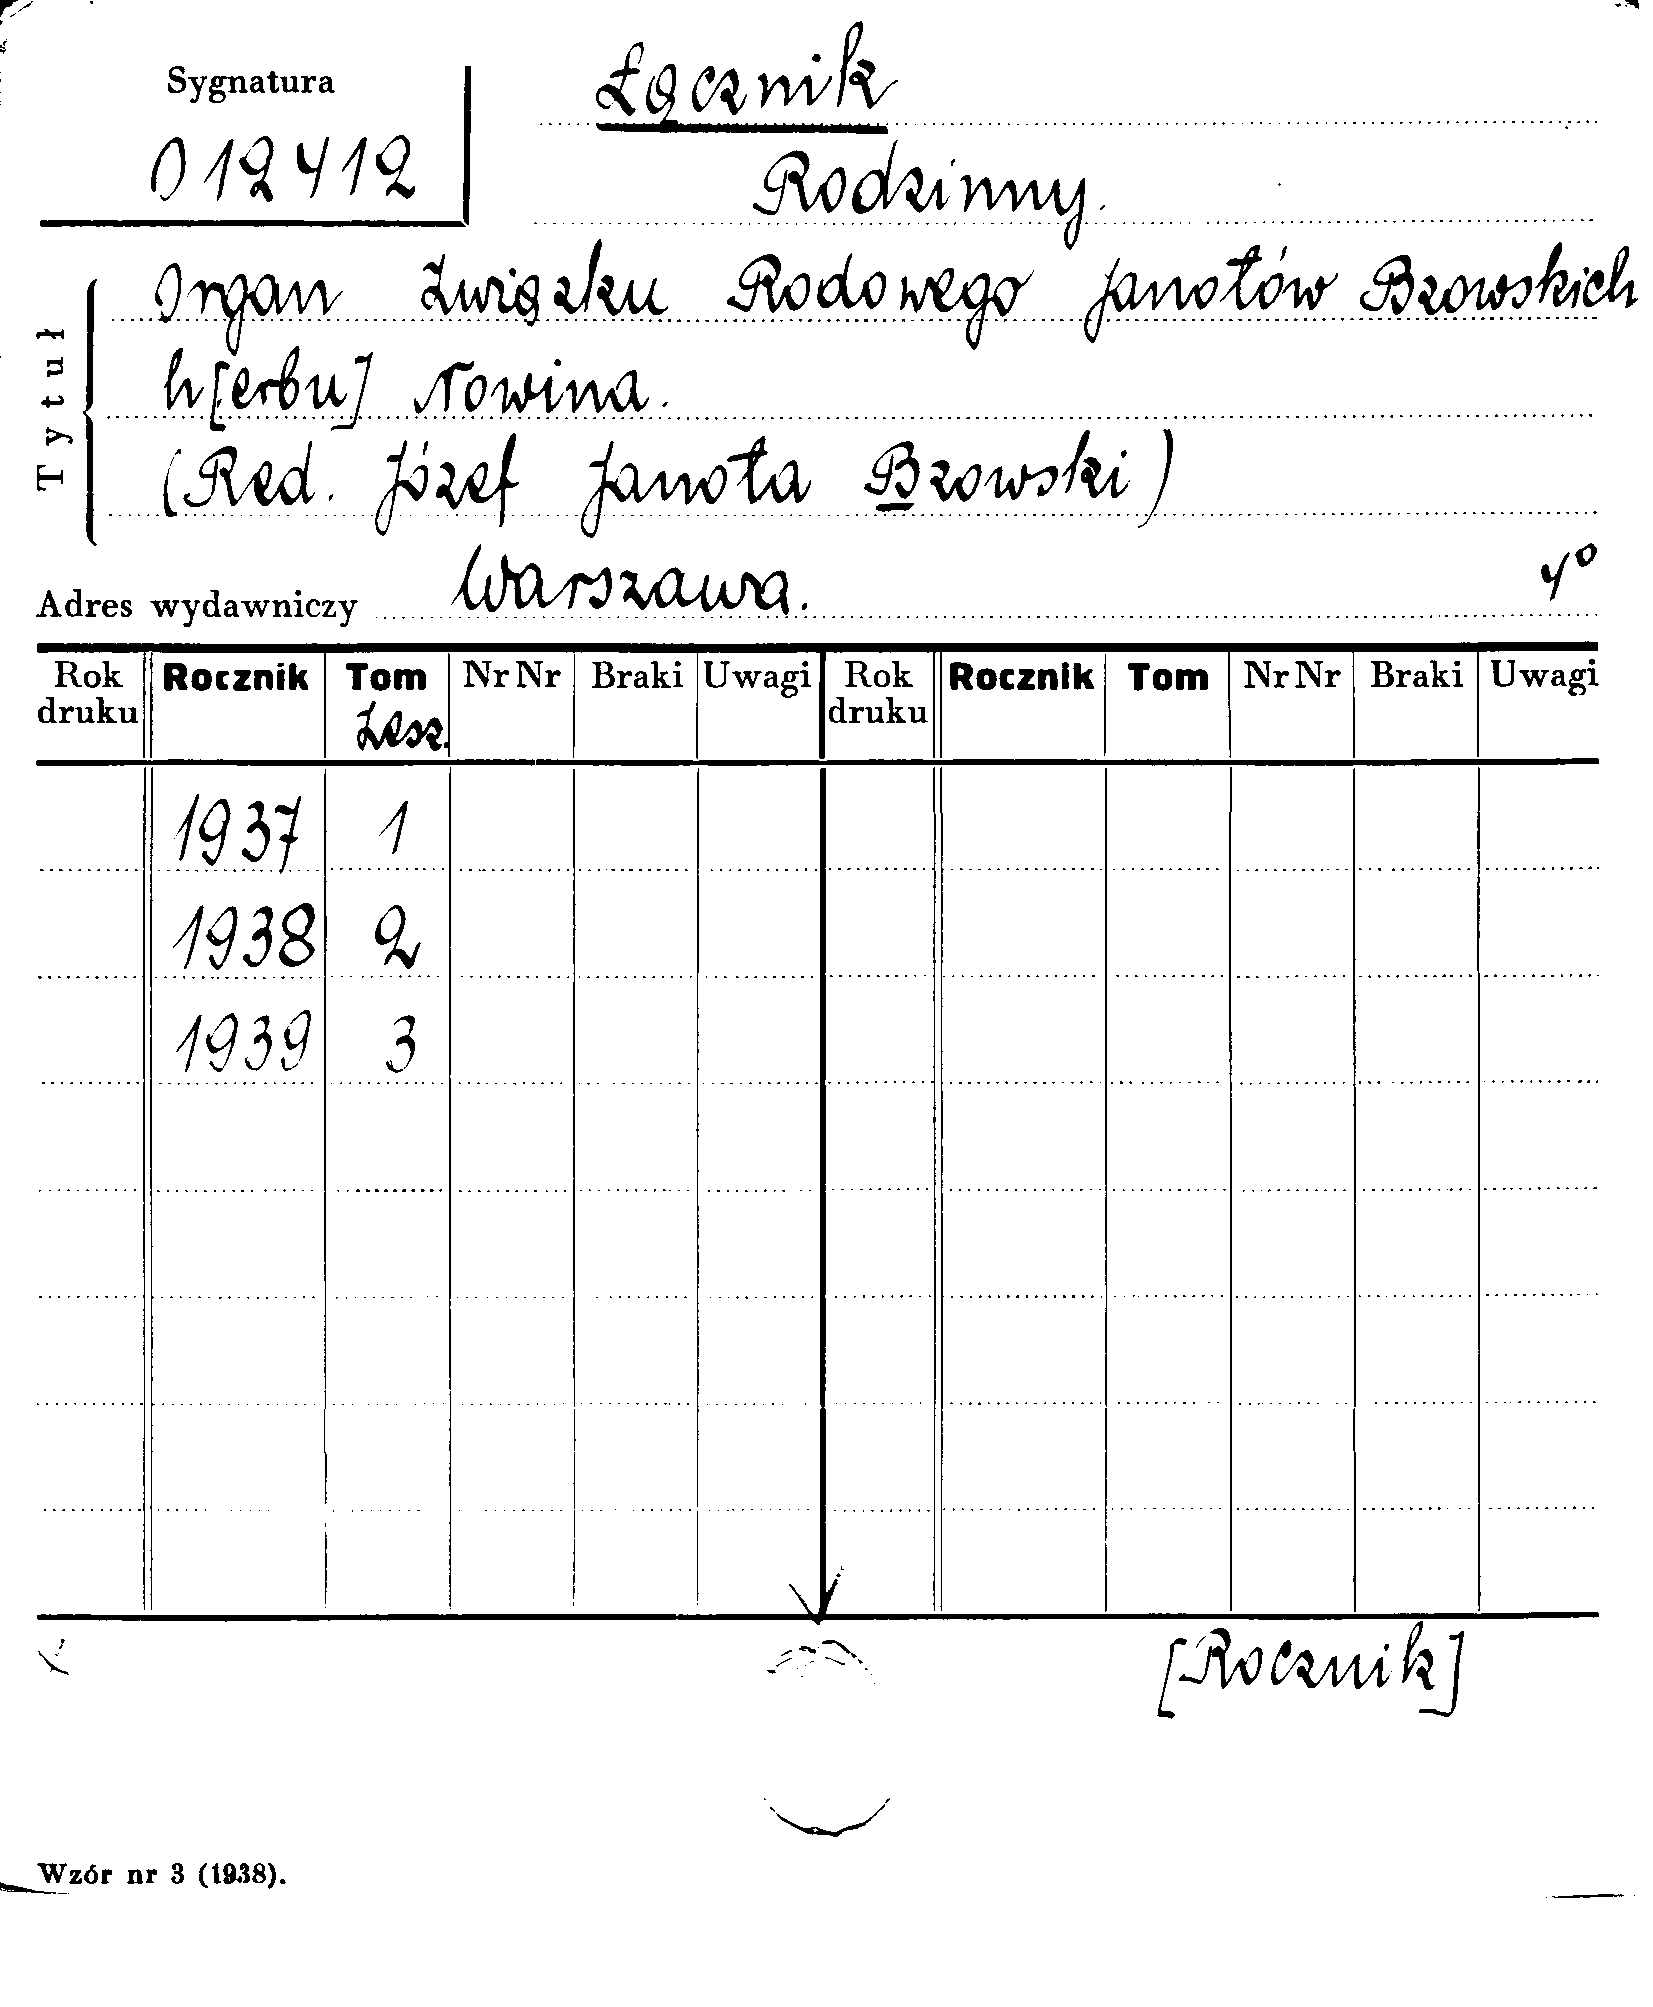 Sygnatura
012412
Łącznik
Rodzinny.
Tytuł
Organ Związku Rodowego Janotów Bzowskich
h[erbu] Nowina.
(Red. Józef Janota Bzowski)
Adres wydawniczy Warszawa. 4°
Rok druku Rocznik Tom Zesz. Nr Nr Braki Uwagi Rok druku Rocznik Tom Nr Nr Braki Uwagi
1937 1
1938 2
1939 3
[Rocznik]
Wzór nr 3 (1938).